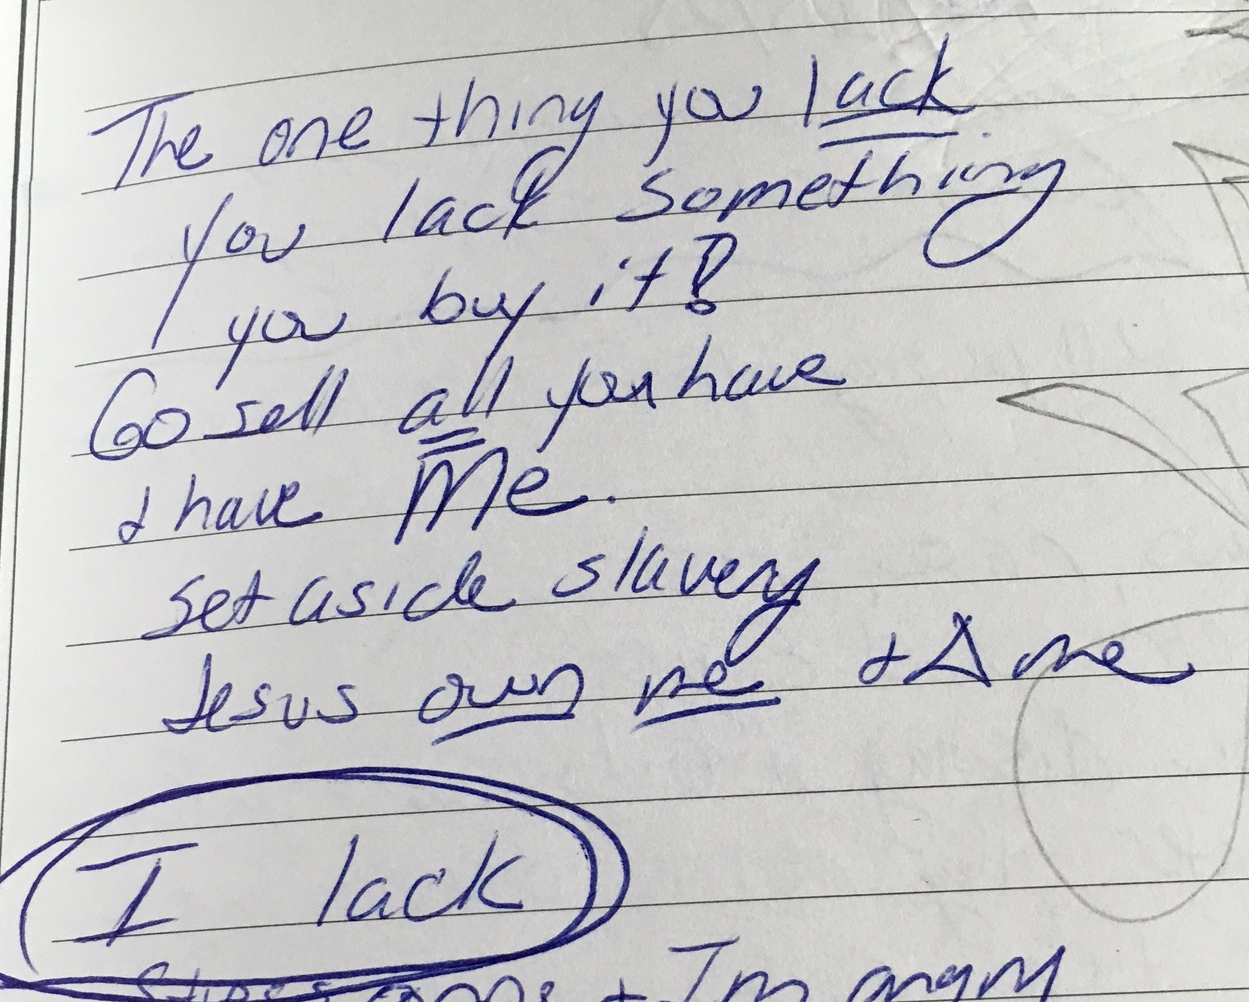 The one thing you lack.
you lack something
you buy it?
Go sell all you have
& have Me.
set aside slavery
Jesus own me + Δ me
I lack
+ I'm angry